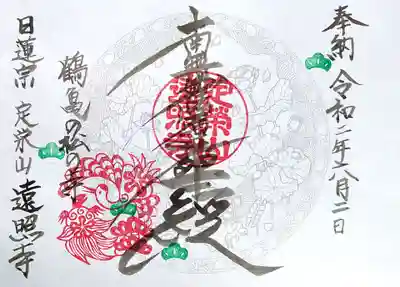 奉納 令和二年八月二日
南無妙法蓮華経
定榮山
遠照寺
鶴亀の松の寺
日蓮宗 定栄山 遠照寺